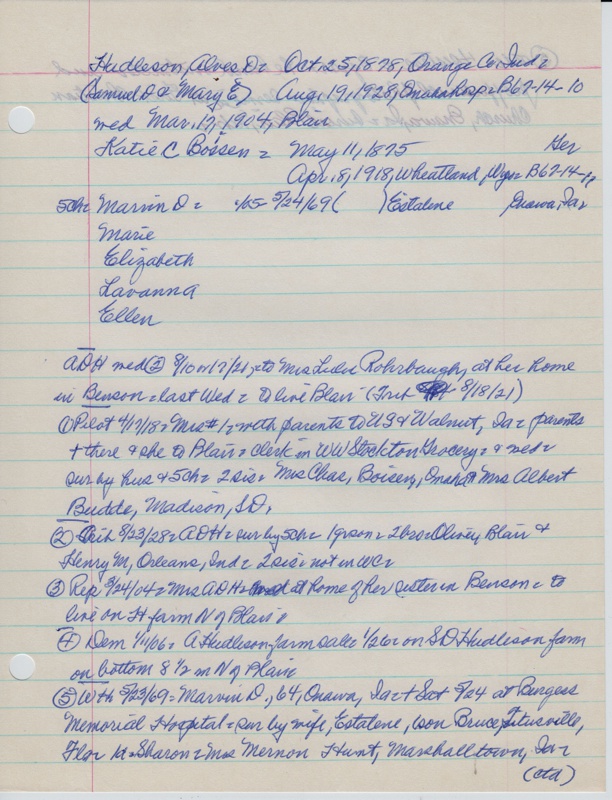 Hudleson, Alves D = Oct. 25, 1878, Orange Co, Ind =
(Samuel D & Mary E) Aug. 19, 1928, Omaha Hosp = B67-14-10
med Mar. 17, 1904, Blair
Katie C Boisen = May 11, 1875 Ger
Apr. 8, 1918, Wheatland, Wyo = B67-14-
5ch = Marvin D = 5/24/69 ( ) Estalene Onawa, Ia,
Marie
Elizabeth
Lavanna
Ellen
ADH med ② 8/10 or 17/21 = to Mrs Rohrbaugh, at her home
in Benson = last Wed = to live Blair (Trib 8/18/21)
① Pilot 4/17/18 = Mrs #1 = with parents to US & Walnut, Ia = parents
+ there & she to Blair = clerk in WW Stockton Grocery = & med =
sur by hus & 5ch = 2 sis = Mrs Chas. Boisen, Omaha & Mrs Albert
Budde, Madison, SD,
② 8/23/28 = ADH = sur by 5ch = 1 grson = 2 bro = Oliver, Blair &
Henry M, Orleans, Ind = 2 sis = not in WC =
③ Rep 3/24/04 = Mrs ADH = at home of her sister in Benson = to
live on H farm N of Blair
④ Dem 1/11/06 = A Hudleson farm sale 1/26 = on SD Hudleson farm
on bottom 8 1/2 m N of Blair
⑤ WH 5/23/69 = Marvin D., 64, Onawa, Ia + Sat 5/24 at Burgess
Memorial Hospital = sur by wife, Estalene, son Bruce, Titusville,
Fla = Sharon = Mrs Mernon Hunt, Marshalltown, Ia =
(ctd)